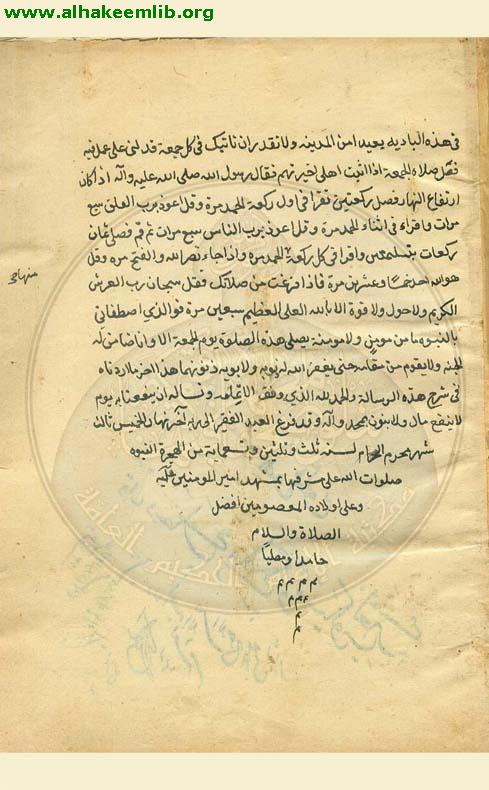 www.alhakeemlib.org
فى هذه الباديه بعيدا من المدينه ولا نقدر ان ناتيك فى كل جمعة فدلنى على عمل فيه
فضل صلاه الجمعة اذا اتيت اهلى اخبرتهم فقال رسول الله صلى الله عليه وآله اذا كان
ارتفاع النهار فصل ركعتين تقرا فى اول ركعة الحمد مرة وقل اعوذ برب الفلق سبع
مرات واقراء فى الثانية الحمد مرة وقل اعوذ برب الناس سبع مرات ثم قم فصل ثمان
ركعات بتسليمتين واقرا فى كل ركعة الحمد مره واذا جاء نصر الله والفتح مره وقل
هو الله احد خمسا وعشرين مرة فاذا فرغت من صلاتك فقل سبحان رب العرش
الكريم ولا حول ولا قوة الا بالله العلى العظيم سبعين مرة فو الذي اصطفانى
بالنبوه ما من مومن ولا مومنة يصلى هذه الصلوة يوم الجمعة الا وانا ضامن له
الجنة ولا يقوم من مقامه حتى يغفر الله له ذنوبه ولابويه ذنوبهما هذا اخر ما اردناه
فى شرح هذه الرسالة والحمد لله الذي وفقنا لاتمامه ونساله ان ينفعنا به يوم
لا ينفع مال ولا بنون بمحمد وآله وقد فرغ العبد الفقير الى ربه آخر نهار الخميس ثالث
شهر محرم الحرام لسنه ثلث وثلثين وتسعماية من الهجرة النبوه
صلوات الله على مشرفها بمشهد امير المومنين عليه
وعلى اولاده المعصومين افضل
الصلاة والسلام
حامدا ومصليا
م م م م
م م م
م
م